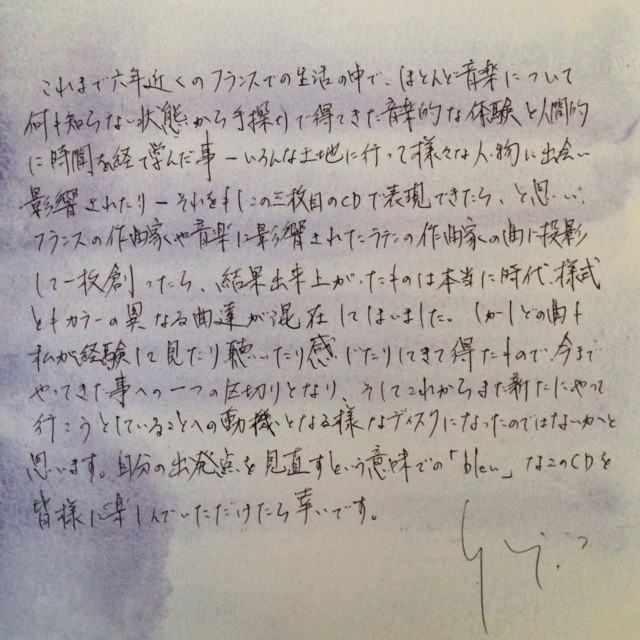 これまで六年近くのフランスでの生活の中で、ほとんど音楽について
何も知らない状態から手探りで得てきた音楽的な体験と人間的
に時間を経て学んだ事－いろんな土地に行って様々な人・物に出会い
影響されたり－それをもしこの三枚目のCDで表現できたら、と思い、
フランスの作曲家や音楽に影響されたラテンの作曲家の曲に投影
して一枚創ったら、結果出来上がったものは本当に時代、様式
ともカラーの異なる曲達が混在してしまいました。しかしどの曲も
私が経験して見たり聴いたり感じたりしてきて得たもので、今まで
やってきた事への一つの区切りとなり、そしてこれからまた新たにやって
行こうとしていることへの動機となる様なディスクになったのではないかと
思います。自分の出発点を見直すという意味での「bleu」なこのCDを
皆様に楽しんでいただけたら幸いです。